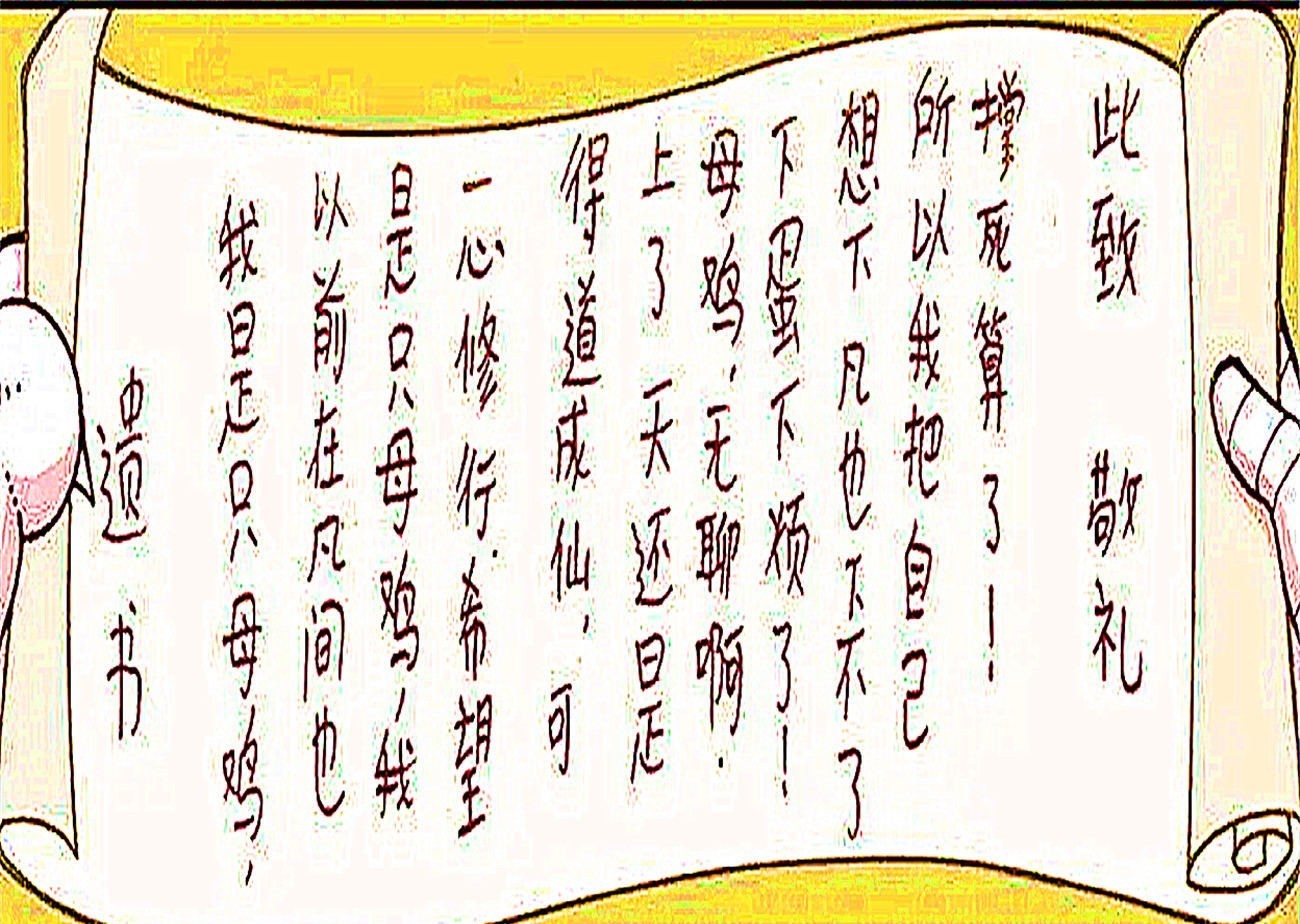 遗书
我是只母鸡,
以前在凡间也
是只母鸡,我
一心修行.希望
得道成仙,可
上了天还是
母鸡.无聊啊.
下蛋下烦了!
想下凡也下不了
所以我把自己
撑死算了!
此致 敬礼